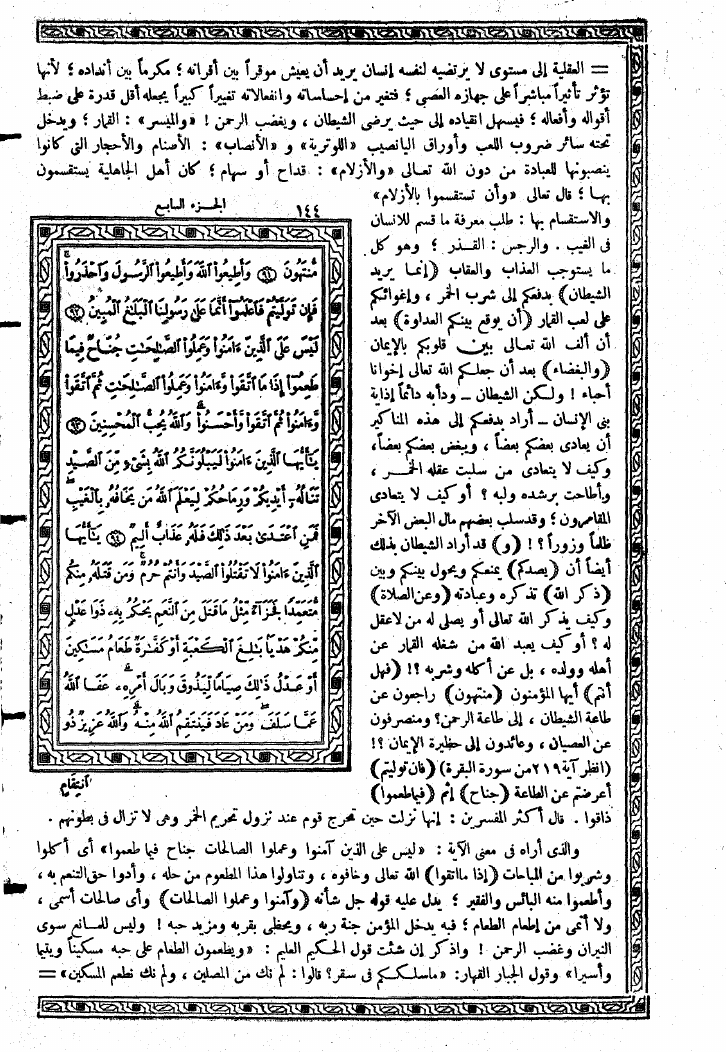 = العقلية إلى مستوى لا يرتضيه لنفسه إنسان يريد أن يعيش موقراً بين أقرانه ؛ مكرماً بين أنداده ؛ لأنها
تؤثر تأثيراً مباشراً على جهازه العصبي ؛ فتغير من إحساساته وانفعالاته تغييراً كبيراً يجعله أقل قدرة على ضبط
أقواله وأفعاله ؛ فيسهل انقياده إلى حيث يرضى الشيطان ، ويغضب الرحمن ! «والميسر» : القمار ؛ ويدخل
تحته سائر ضروب اللعب وأوراق اليانصيب «اللوترية» و «الأنصاب» : الأصنام والأحجار التى كانوا
ينصبونها للعبادة من دون الله تعالى «والأزلام» : قداح أو سهام ؛ كان أهل الجاهلية يستقسمون
بها ؛ قال تعالى «وأن تستقسموا بالأزلام»
والاستقسام بها : طلب معرفة ما قسم للانسان
فى الغيب . والرجس : القذر ؛ وهو كل
ما يستوجب العذاب والعقاب (إنما يريد
الشيطان) بدفعكم إلى شرب الخمر ، وإغوائكم
على لعب القمار (أن يوقع بينكم العداوة) بعد
أن ألف الله تعالى بين قلوبكم بالإيمان
(والبغضاء) بعد أن جعلكم الله تعالى إخوانا
أحباء ! ولكن الشيطان ـ ودأبه دائماً إذاية
بنى الإنسان ـ أراد بدفعكم إلى هذه المناكير
أن يعادى بعضكم بعضاً ، ويبغض بعضكم بعضاً،
وكيف لا يتعادى من سلبت عقله الخمر ،
وأطاحت برشده ولبه ؟ أو كيف لا يتعادى
المقامرون ؛ وقد سلب بعضهم مال البعض الآخر
ظلماً وزوراً ؟ ! (و) قد أراد الشيطان بذلك
أيضاً أن (يصدكم) يمنعكم ويحول بينكم وبين
(ذكر الله) تذكره وعبادته (وعن الصلاة)
وكيف يذكر الله تعالى أو يصلى له من لا عقل
له ؟ أو كيف يعبد الله من شغله القمار عن
أهله وولده ، بل عن أكله وشربه ؟! (فهل
أنتم) أيها المؤمنون (منتهون) راجعون عن
طاعة الشيطان ، إلى طاعة الرحمن؟ ومنصرفون
عن العصيان ، وعائدون إلى حظيرة الإيمان ؟!
(انظر آية ٢١٩ من سورة البقرة) (فإن توليتم)
أعرضتم عن الطاعة (جناح) إثم (فيما طعموا)
١٤٤ الجزء السابع
مُّنتَهُونَ ﴿٩١﴾ وَأَطِيعُوا۟ ٱللَّهَ وَأَطِيعُوا۟ ٱلرَّسُولَ وَٱحْذَرُوا۟ ۚ
فَإِن تَوَلَّيْتُمْ فَٱعْلَمُوٓا۟ أَنَّمَا عَلَىٰ رَسُولِنَا ٱلْبَلَٰغُ ٱلْمُبِينُ ﴿٩٢﴾
لَيْسَ عَلَى ٱلَّذِينَ ءَامَنُوا۟ وَعَمِلُوا۟ ٱلصَّٰلِحَٰتِ جُنَاحٌ فِيمَا
طَعِمُوٓا۟ إِذَا مَا ٱتَّقَوا۟ وَّءَامَنُوا۟ وَعَمِلُوا۟ ٱلصَّٰلِحَٰتِ ثُمَّ ٱتَّقَوا۟
وَّءَامَنُوا۟ ثُمَّ ٱتَّقَوا۟ وَّأَحْسَنُوا۟ ۗ وَٱللَّهُ يُحِبُّ ٱلْمُحْسِنِينَ ﴿٩٣﴾
يَٰٓأَيُّهَا ٱلَّذِينَ ءَامَنُوا۟ لَيَبْلُوَنَّكُمُ ٱللَّهُ بِشَىْءٍ مِّنَ ٱلصَّيْدِ
تَنَالُهُۥٓ أَيْدِيكُمْ وَرِمَاحُكُمْ لِيَعْلَمَ ٱللَّهُ مَن يَخَافُهُۥ بِٱلْغَيْبِ ۚ
فَمَنِ ٱعْتَدَىٰ بَعْدَ ذَٰلِكَ فَلَهُۥ عَذَابٌ أَلِيمٌ ﴿٩٤﴾ يَٰٓأَيُّهَا
ٱلَّذِينَ ءَامَنُوا۟ لَا تَقْتُلُوا۟ ٱلصَّيْدَ وَأَنتُمْ حُرُمٌ ۚ وَمَن قَتَلَهُۥ مِنكُم
مُّتَعَمِّدًا فَجَزَآءٌ مِّثْلُ مَا قَتَلَ مِنَ ٱلنَّعَمِ يَحْكُمُ بِهِۦ ذَوَا عَدْلٍ
مِّنكُمْ هَدْيًۢا بَٰلِغَ ٱلْكَعْبَةِ أَوْ كَفَّٰرَةٌ طَعَامُ مَسَٰكِينَ
أَوْ عَدْلُ ذَٰلِكَ صِيَامًا لِّيَذُوقَ وَبَالَ أَمْرِهِۦ ۗ عَفَا ٱللَّهُ
عَمَّا سَلَفَ ۚ وَمَنْ عَادَ فَيَنتَقِمُ ٱللَّهُ مِنْهُ ۗ وَٱللَّهُ عَزِيزٌ ذُو
ٱنتِقَامٍ
ذاقوا . قال أكثر المفسرين : إنها نزلت حين تحرج قوم عند نزول تحريم الخمر وهى لا تزال فى بطونهم .
والذى أراه فى معنى الآية : «ليس على الذين آمنوا وعملوا الصالحات جناح فيما طعموا» أى أكلوا
وشربوا من المباحات (إذا ما اتقوا) الله تعالى وخافوه ، وتناولوا هذا المطعوم من حله ، وأدوا حق التنعم به ،
وأطعموا منه البائس والفقير ؛ يدل عليه قوله جل شأنه (وآمنوا وعملوا الصالحات) وأى صالحات أسمى ،
ولا أنمى من إطعام الطعام ؛ فبه يدخل المؤمن جنة ربه ، ويحظى بقربه ومزيد حبه ! وليس للمانع سوى
النيران وغضب الرحمن ! واذكر إن شئت قول الحكيم العليم : «ويطعمون الطعام على حبه مسكيناً ويتيما
وأسيرا» وقول الجبار القهار: «ما سلككم فى سقر؟ قالوا : لم نك من المصلين ، ولم نك نطعم المسكين» =